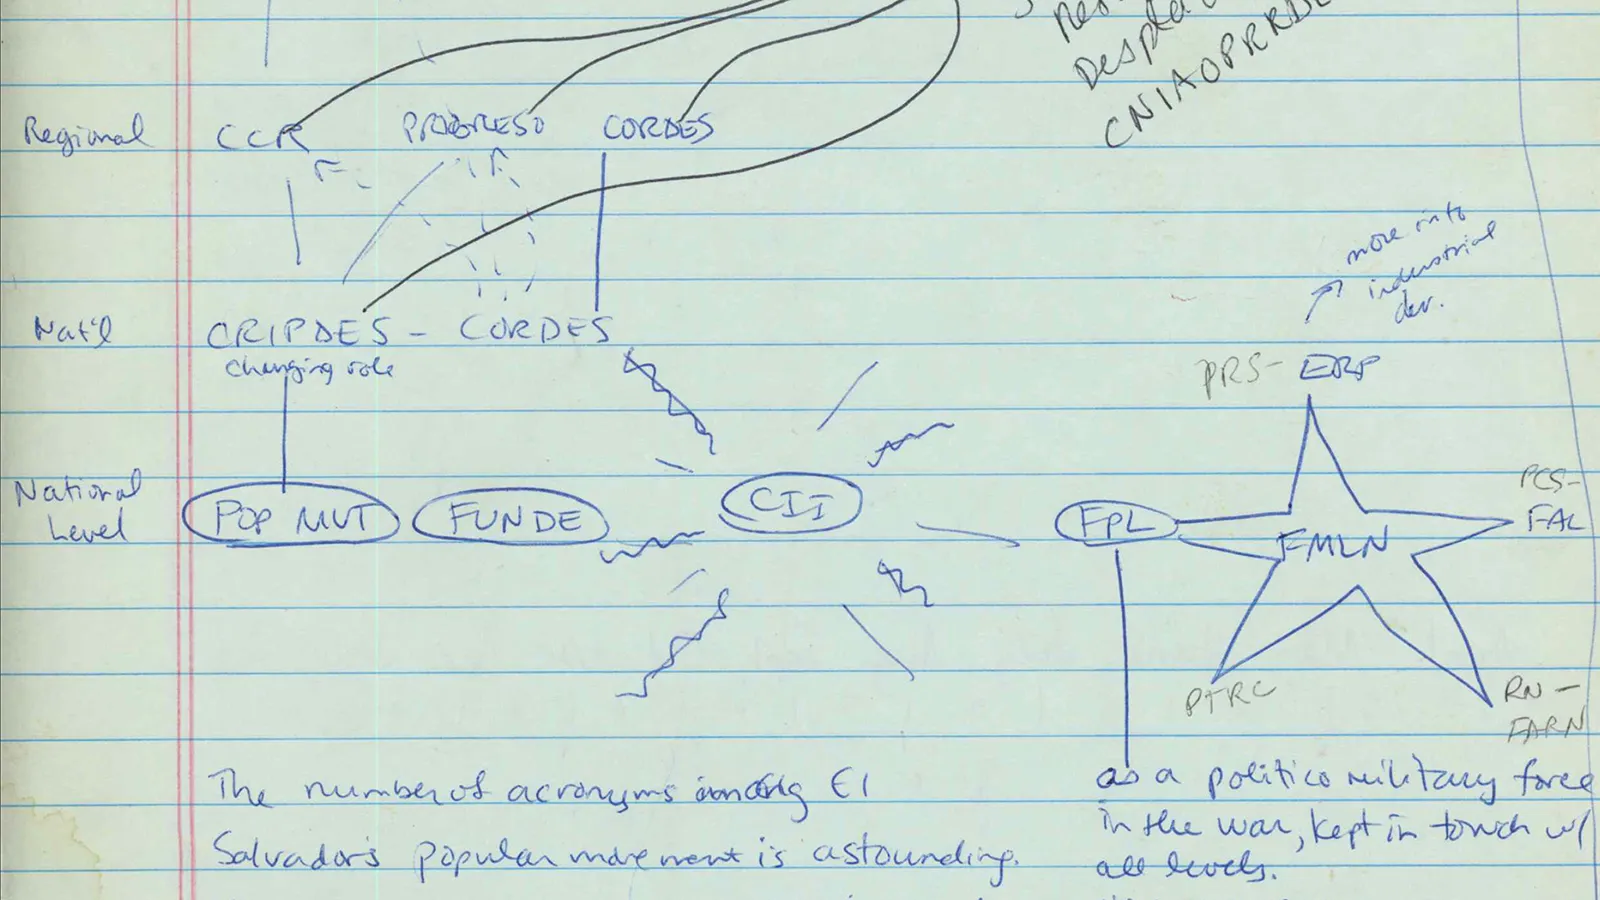 Despla
CNIAOPRRDE
Regional CCR PROGRESO CORDES
more into
industrial
dev.
Nat'l CRIPDES - CORDES
changing role
PRS- ERP
National
Level
POP MVT FUNDE CII FPL FMLN
PCS-
FAL
PTRC
RN-
FARN
The number of acronyms among El
Salvador's popular movement is astounding.
as a politico military force
in the war, kept in touch w/
all levels.